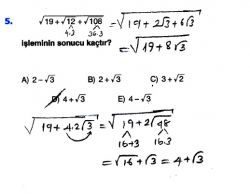 5. √19+√12+√108 = √19+2√3+6√3
4.3 36.3
işleminin sonucu kaçtır? = √19+8√3
A) 2−√3 B) 2+√3 C) 3+√2
D) 4+√3 E) 4−√3
√19+4.2√3 = √19+2√48
16+3 16.3
= √16+√3 = 4+√3